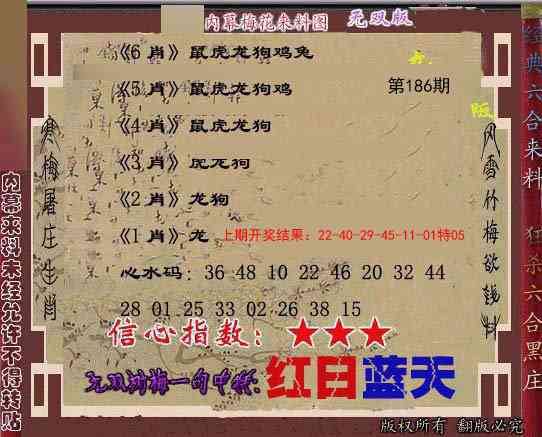 内幕梅花来料图 无双版
《6 肖》鼠虎龙狗鸡兔
《5 肖》鼠虎龙狗鸡
第186期
《4 肖》鼠虎龙狗
《3 肖》虎龙狗
《2 肖》龙狗
《1 肖》龙
上期开奖结果：22-40-29-45-11-01特05
心水码：36 48 10 22 46 20 32 44
28 01 25 33 02 26 38 15
信心指数：★★★
无双刘梅一句中特:红日蓝天
寒梅屠庄生肖
风雪竹梅欲钱料
内幕来料未经允许不得转贴
经典六合来料
狂杀六合黑庄
版权所有 翻版必究